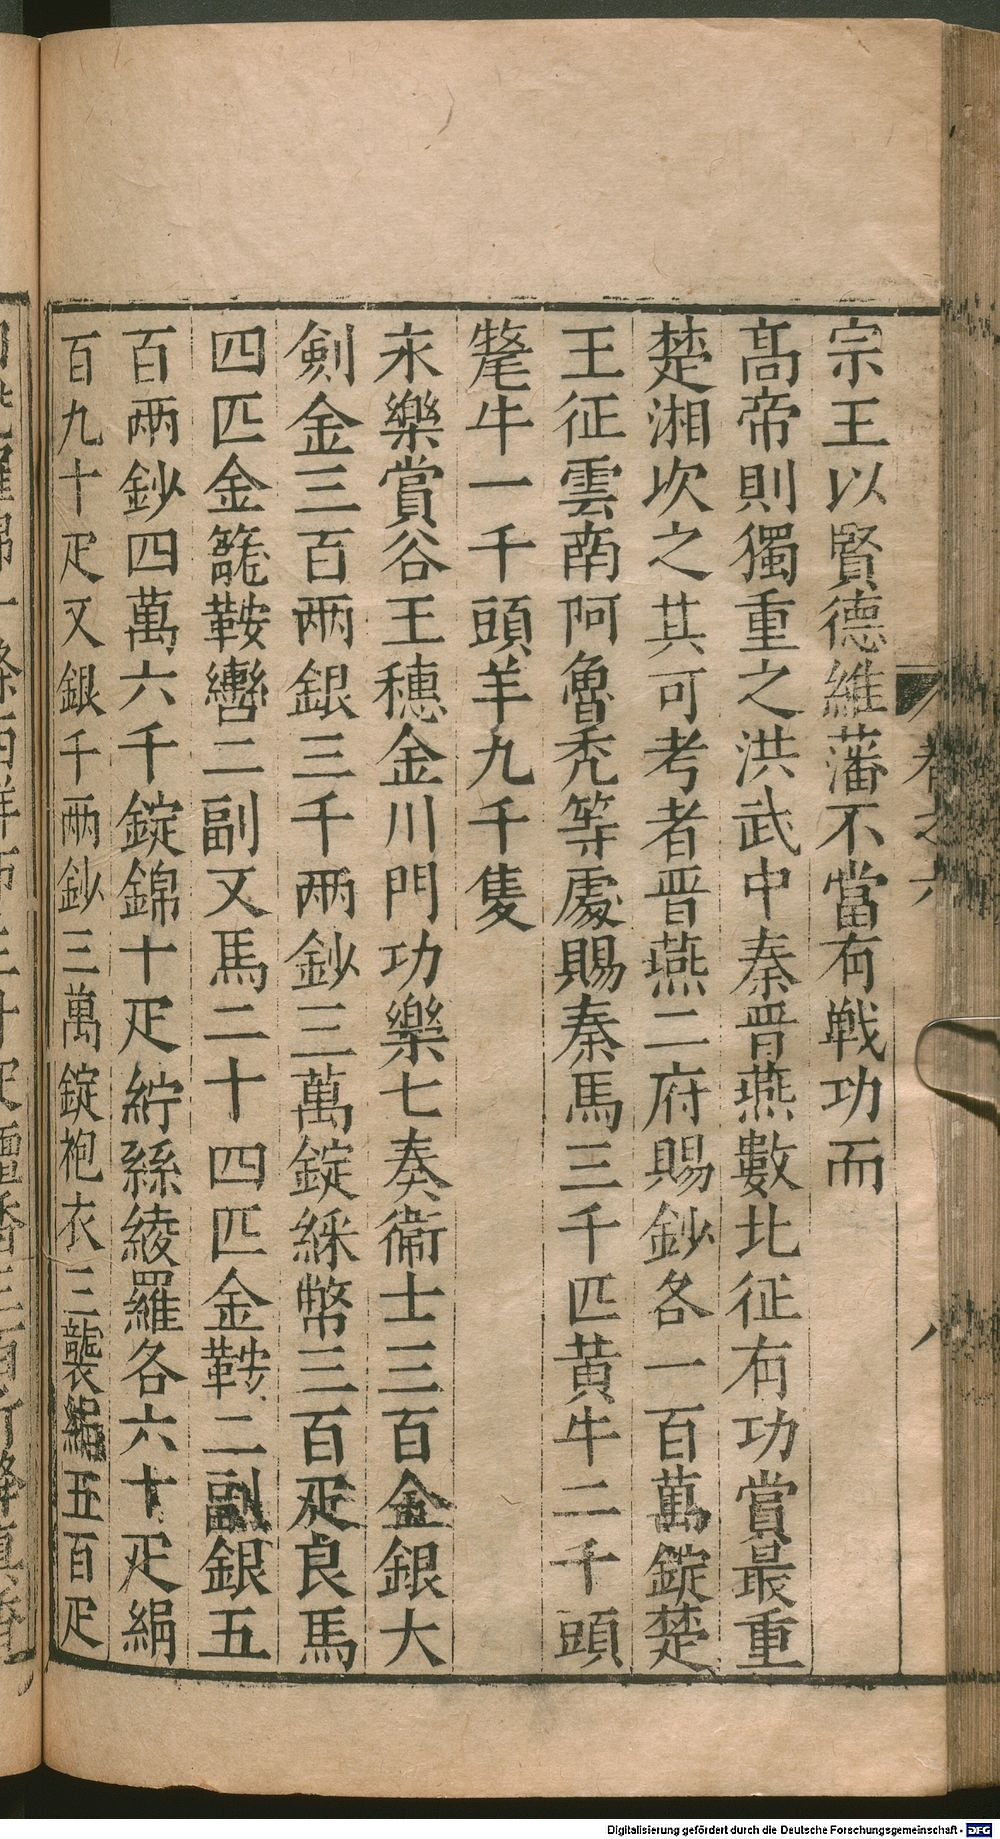 宗王以賢德維藩不當有戰功而
高帝則獨重之洪武中秦晉燕數北征有功賞最重
楚湘次之其可考者晉燕二府賜鈔各一百萬錠楚
王征雲南阿魯禿等處賜秦馬三千匹黃牛二千頭
犛牛一千頭羊九千隻
永樂賞谷王穗金川門功樂七奏衛士三百金銀大
劍金三百兩銀三千兩鈔三萬錠綵幣三百疋良馬
四匹金籠鞍轡二副又馬二十四匹金鞍二副銀五
百兩鈔四萬六千錠錦十疋紵絲綾羅各六十疋絹
百九十疋又銀千兩鈔三萬錠袍衣三襲絹五百疋
卷之六
八
Digitalisierung gefördert durch die Deutsche Forschungsgemeinschaft - DFG